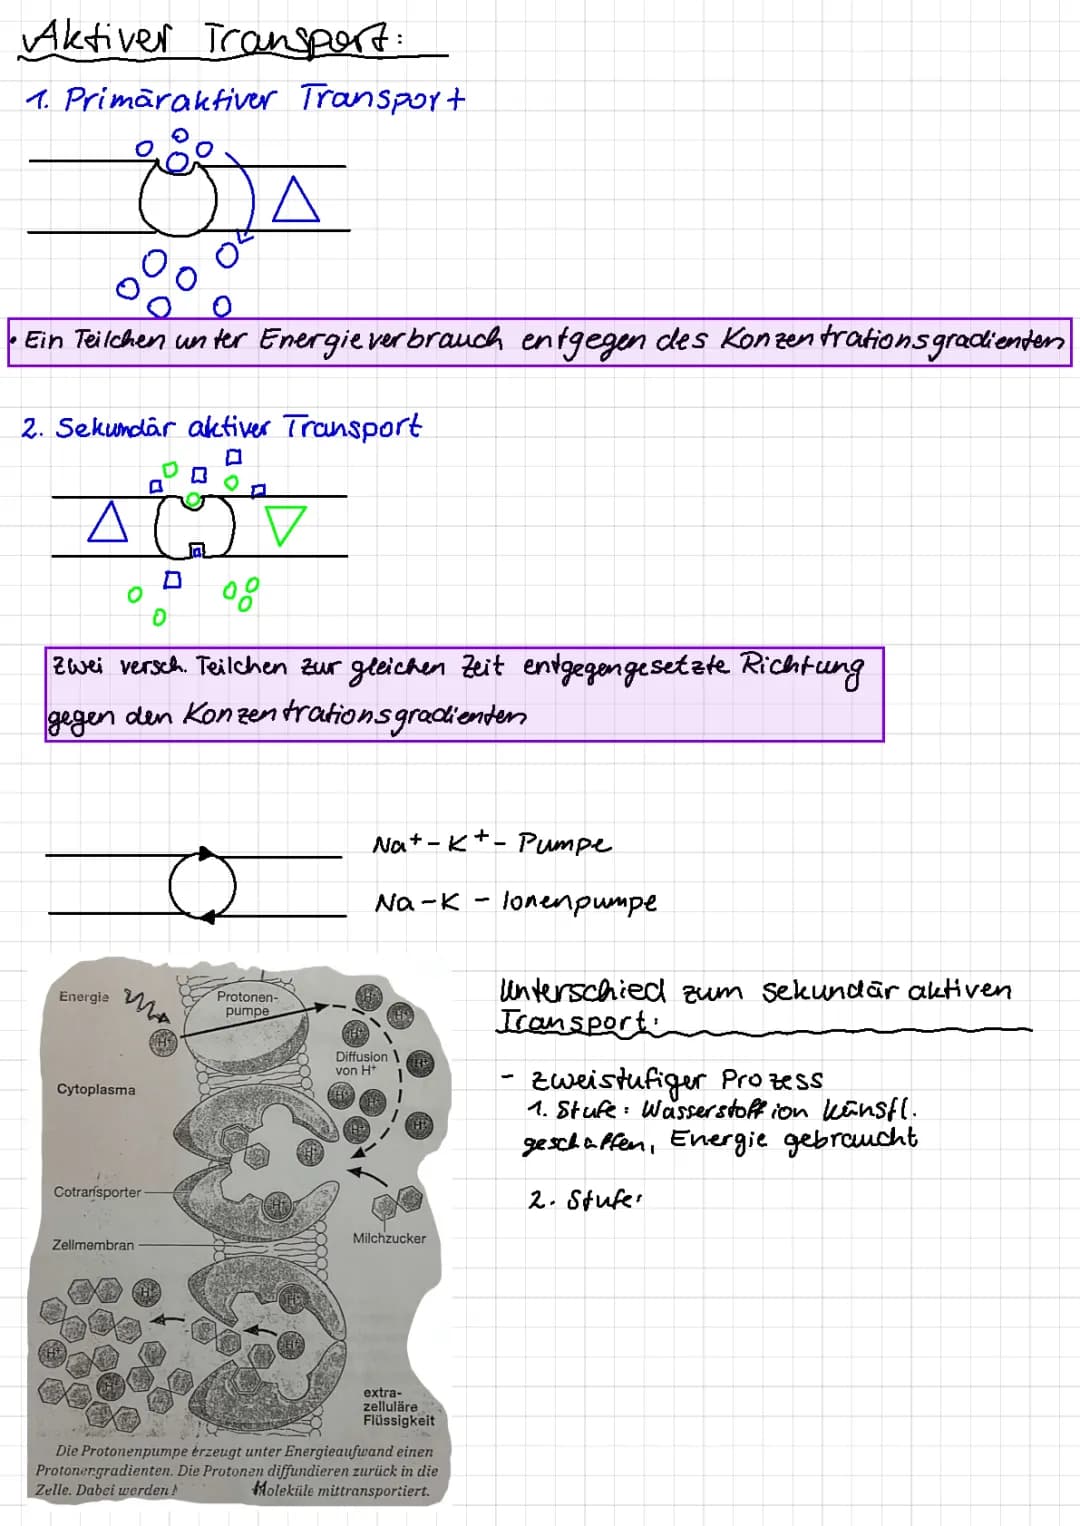 Aktiver Transport:
1. Primäraktiver Transport
• Ein Teilchen unter Energieverbrauch entgegen des Konzentrationsgradienten
2. Sekundär aktiver Transport
Zwei versch. Teilchen zur gleichen Zeit entgegengesetzte Richtung
gegen den Konzentrationsgradienten
Na+-K+- Pumpe
Na-K - Ionenpumpe
Energie
Protonen-
pumpe
H+
Diffusion
von H+
Cytoplasma
Cotransporter
Milchzucker
Zellmembran
extra-
zelluläre
Flüssigkeit
Die Protonenpumpe erzeugt unter Energieaufwand einen
Protonengradienten. Die Protonen diffundieren zurück in die
Zelle. Dabei werden Moleküle mittransportiert.
Unterschied zum sekundär aktiven
Transport:
- zweistufiger Prozess
1. Stufe: Wasserstoff ion künstl.
geschaffen, Energie gebraucht
2. Stufe: